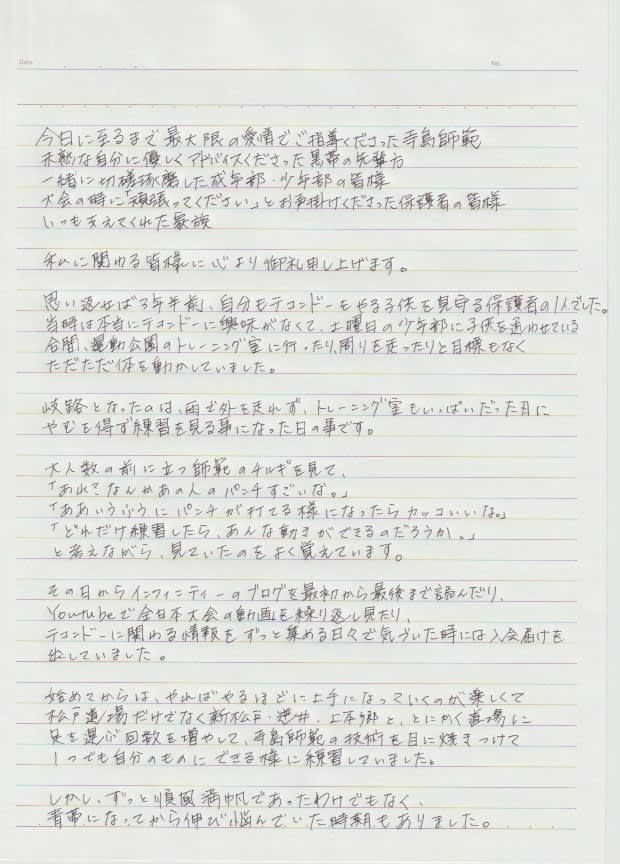 Date
No.
今日に至るまで最大限の愛情でご指導くださった寺島師範
未熟な自分に優しくアドバイスくださった黒帯の先輩方
一緒に切磋琢磨した成年部・少年部の皆様
大会の時に「頑張ってください」とお声掛けくださった保護者の皆様
いつも支えてくれた家族
私に関わる皆様に心より御礼申し上げます。
思い返せば3年半前、自分もテコンドーをやる子供を見守る保護者の1人でした。
当時は本当にテコンドーに興味がなくて、土曜日の少年部に子供を通わせている
合間、運動公園のトレーニング室に行ったり、周りを走ったりと目標もなく
ただただ体を動かしていました。
岐路となったのは、雨で外を走れず、トレーニング室もいっぱいだった為に
やむを得ず練習を見る事になった日の事です。
大人数の前に立つ師範のチルギを見て、
「あれ?なんかあの人のパンチすごいな。」
「ああいうふうにパンチが打てる様になったらカッコいいな。」
「どれだけ練習したら、あんな動きができるのだろうか。」
と考えながら、見ていたのをよく覚えています。
その日からインフィニティーのブログを最初から最後まで読んだり、
Youtubeで全日本大会の動画を繰り返し見たり、
テコンドーに関わる情報をずっと集める日々で気づいた時には入会届けを
出していました。
始めてからは、やればやるほどに上手になっていくのが楽しくて
松戸道場だけでなく新松戸・逆井・上本郷と、とにかく道場に
足を運ぶ回数を増やして、寺島師範の技術を目に焼きつけて
1つでも自分のものにできる様に練習していました。
しかし、ずっと順風満帆であったわけでもなく、
青帯になってから伸び悩んでいた時期もありました。